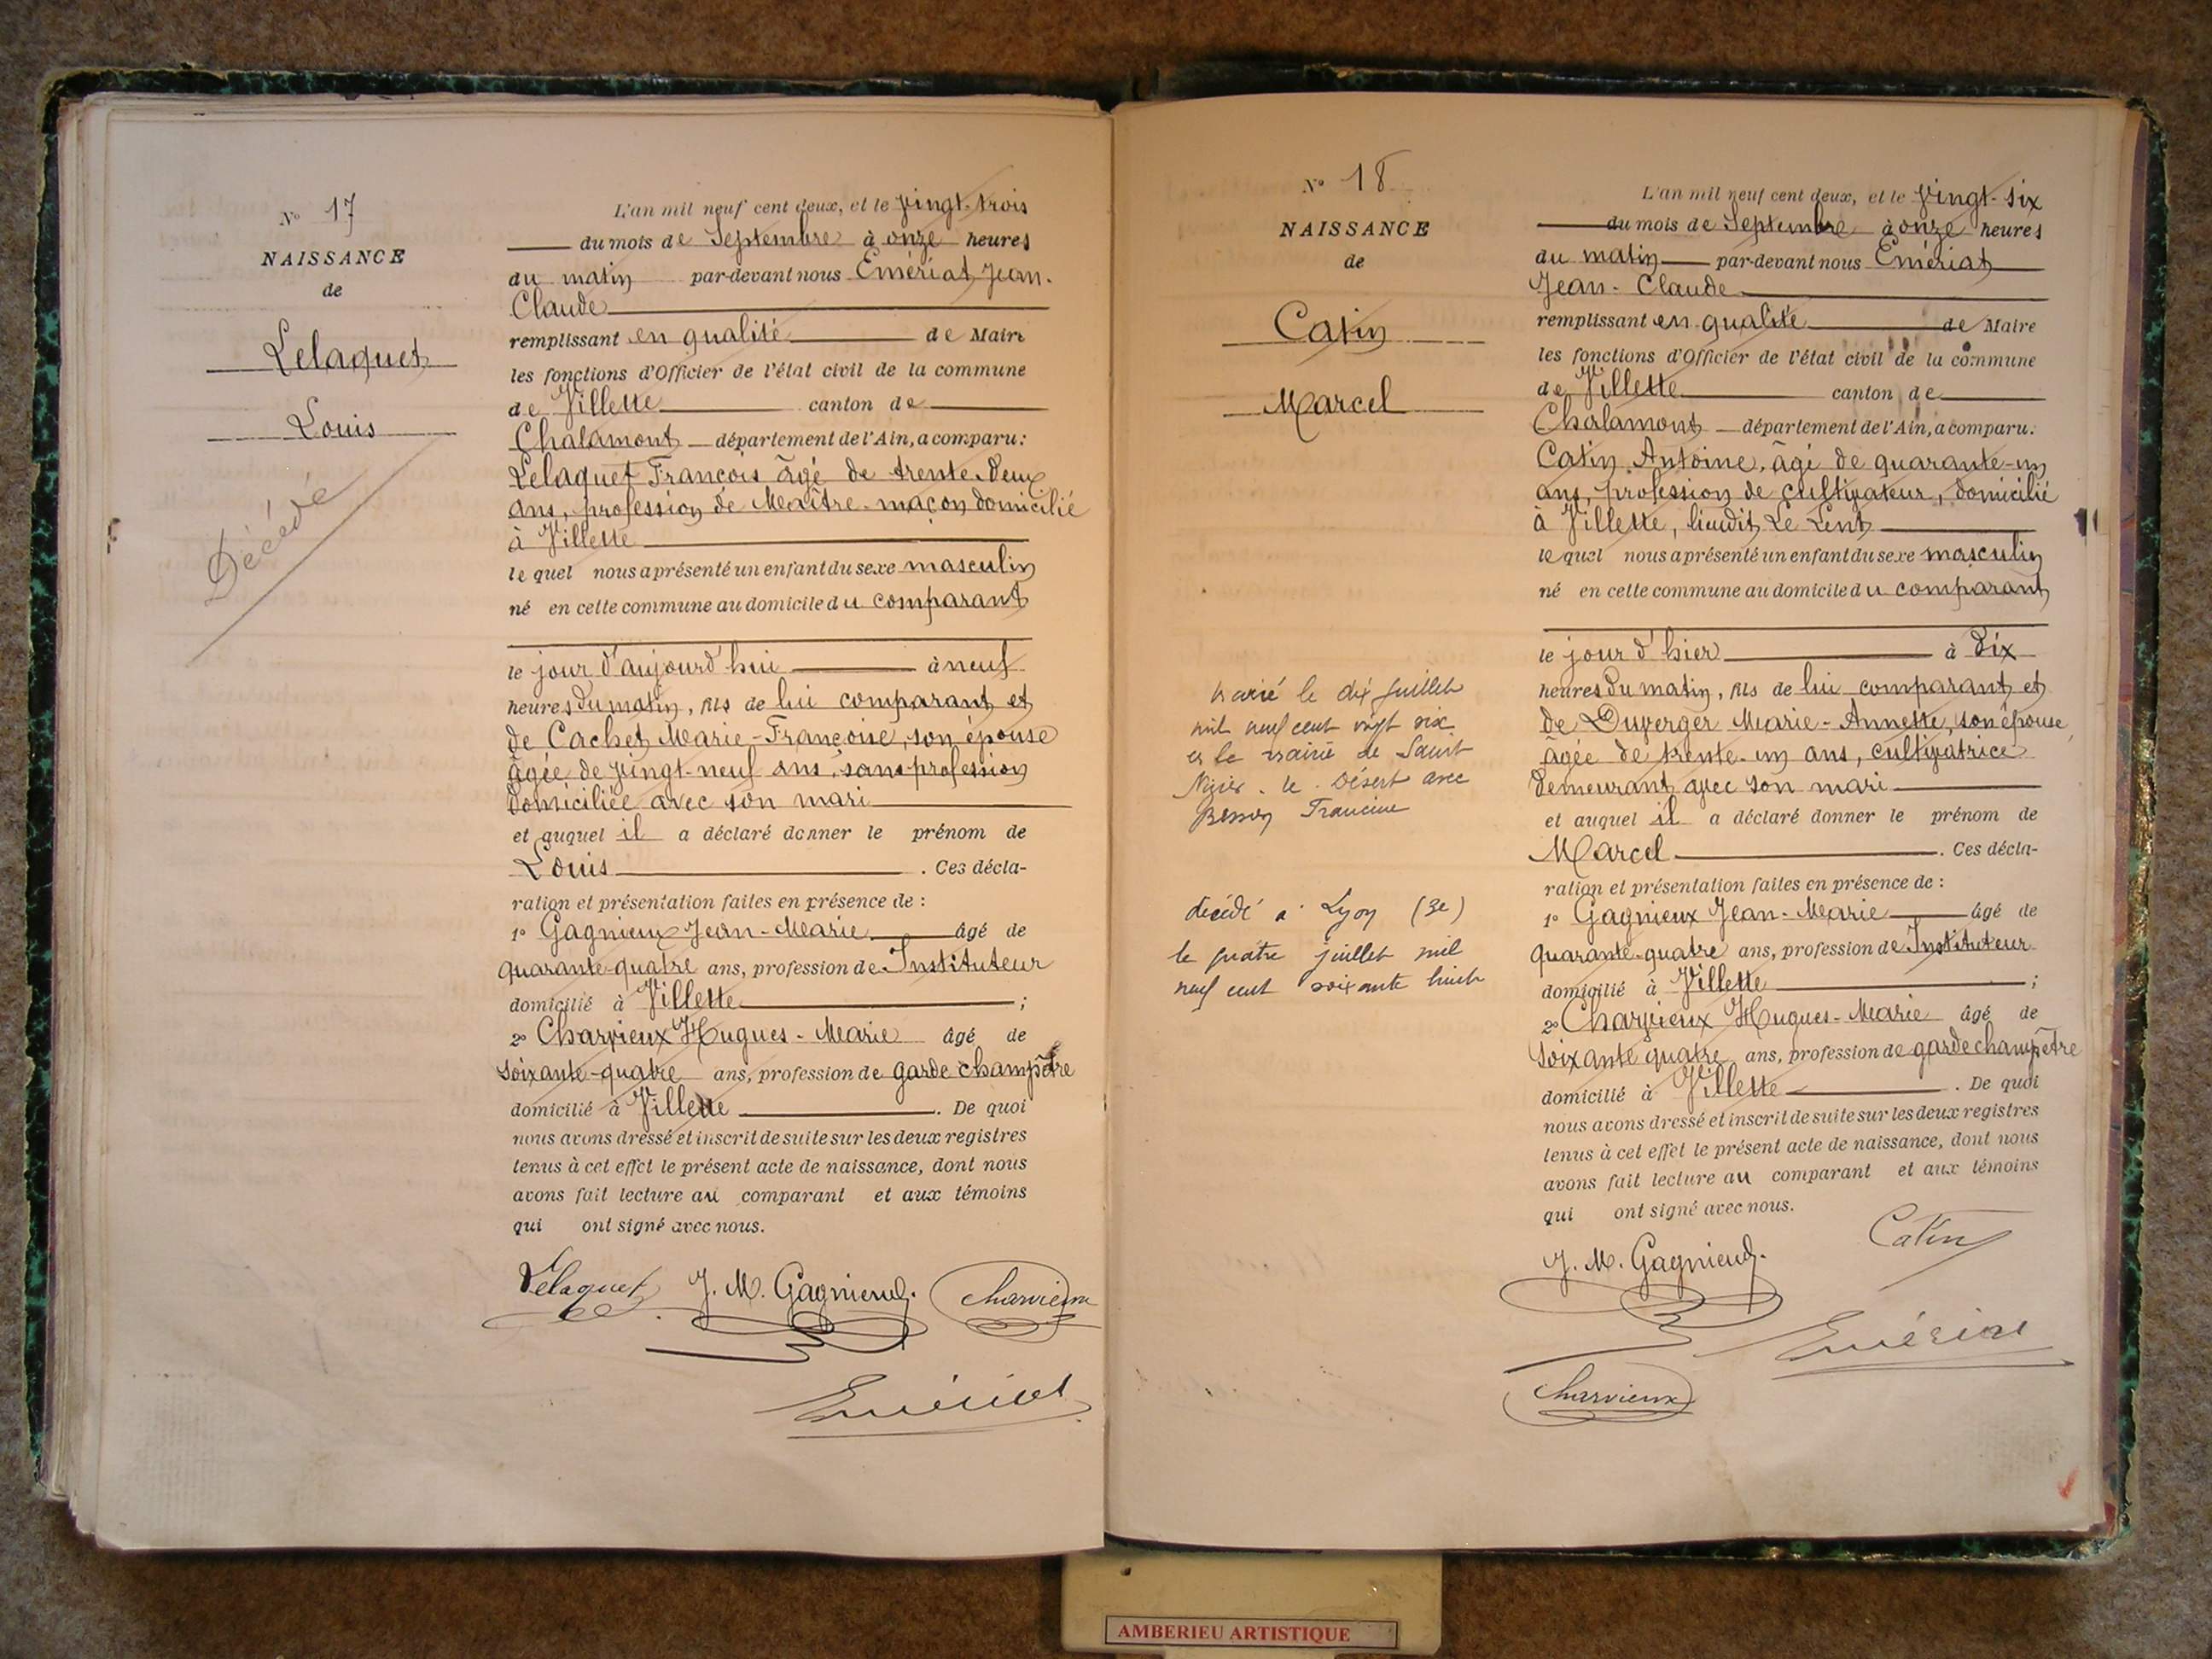 N° 17
NAISSANCE
de
Lelaquet
Louis
Décédé
L'an mil neuf cent deux, et le vingt-trois
du mois de Septembre à onze heures
du matin par-devant nous Emériat Jean-
Claude
remplissant en qualité de Maire
les fonctions d'Officier de l'état civil de la commune
de Villette canton de
Chalamont département de l'Ain, a comparu:
Lelaquet François âgé de trente-deux
ans, profession de Maître-maçon domicilié
à Villette
lequel nous a présenté un enfant du sexe masculin
né en cette commune au domicile du comparant
le jour d'aujourd'hui à neuf
heures du matin, fils de lui comparant et
de Cachet Marie-Françoise, son épouse
âgée de vingt-neuf ans, sans profession
domiciliée avec son mari
et auquel il a déclaré donner le prénom de
Louis. Ces décla-
ration et présentation faites en présence de :
1° Gagnieux Jean-Marie âgé de
quarante-quatre ans, profession de Instituteur
domicilié à Villette ;
2° Charvieux Hugues-Marie âgé de
soixante-quatre ans, profession de garde champêtre
domicilié à Villette. De quoi
nous avons dressé et inscrit de suite sur les deux registres
tenus à cet effet le présent acte de naissance, dont nous
avons fait lecture au comparant et aux témoins
qui ont signé avec nous.
Lelaquet J. M. Gagnieux. Charvieux
Emériat
N° 18
NAISSANCE
de
Catin
Marcel
marié le dix juillet
mil neuf cent vingt six
en la mairie de Saint
Nizier-le-Désert avec
Besson Francine
décédé à Lyon (3e)
le quatre juillet mil
neuf cent soixante huit
L'an mil neuf cent deux, et le vingt-six
du mois de Septembre à onze heures
du matin par-devant nous Emériat
Jean-Claude
remplissant en qualité de Maire
les fonctions d'Officier de l'état civil de la commune
de Villette canton de
Chalamont département de l'Ain, a comparu:
Catin Antoine, âgé de quarante-un
ans, profession de cultivateur, domicilié
à Villette, lieudit Le Lent
lequel nous a présenté un enfant du sexe masculin
né en cette commune au domicile du comparant
le jour d'hier à dix
heures du matin, fils de lui comparant et
de Duverger Marie-Annette, son épouse,
âgée de trente-un ans, cultivatrice
demeurant avec son mari
et auquel il a déclaré donner le prénom de
Marcel. Ces décla-
ration et présentation faites en présence de :
1° Gagnieux Jean-Marie âgé de
quarante-quatre ans, profession de Instituteur
domicilié à Villette ;
2° Charvieux Hugues-Marie âgé de
soixante quatre ans, profession de garde champêtre
domicilié à Villette. De quoi
nous avons dressé et inscrit de suite sur les deux registres
tenus à cet effet le présent acte de naissance, dont nous
avons fait lecture au comparant et aux témoins
qui ont signé avec nous.
Catin
J. M. Gagnieux.
Emériat
Charvieux
AMBERIEU ARTISTIQUE